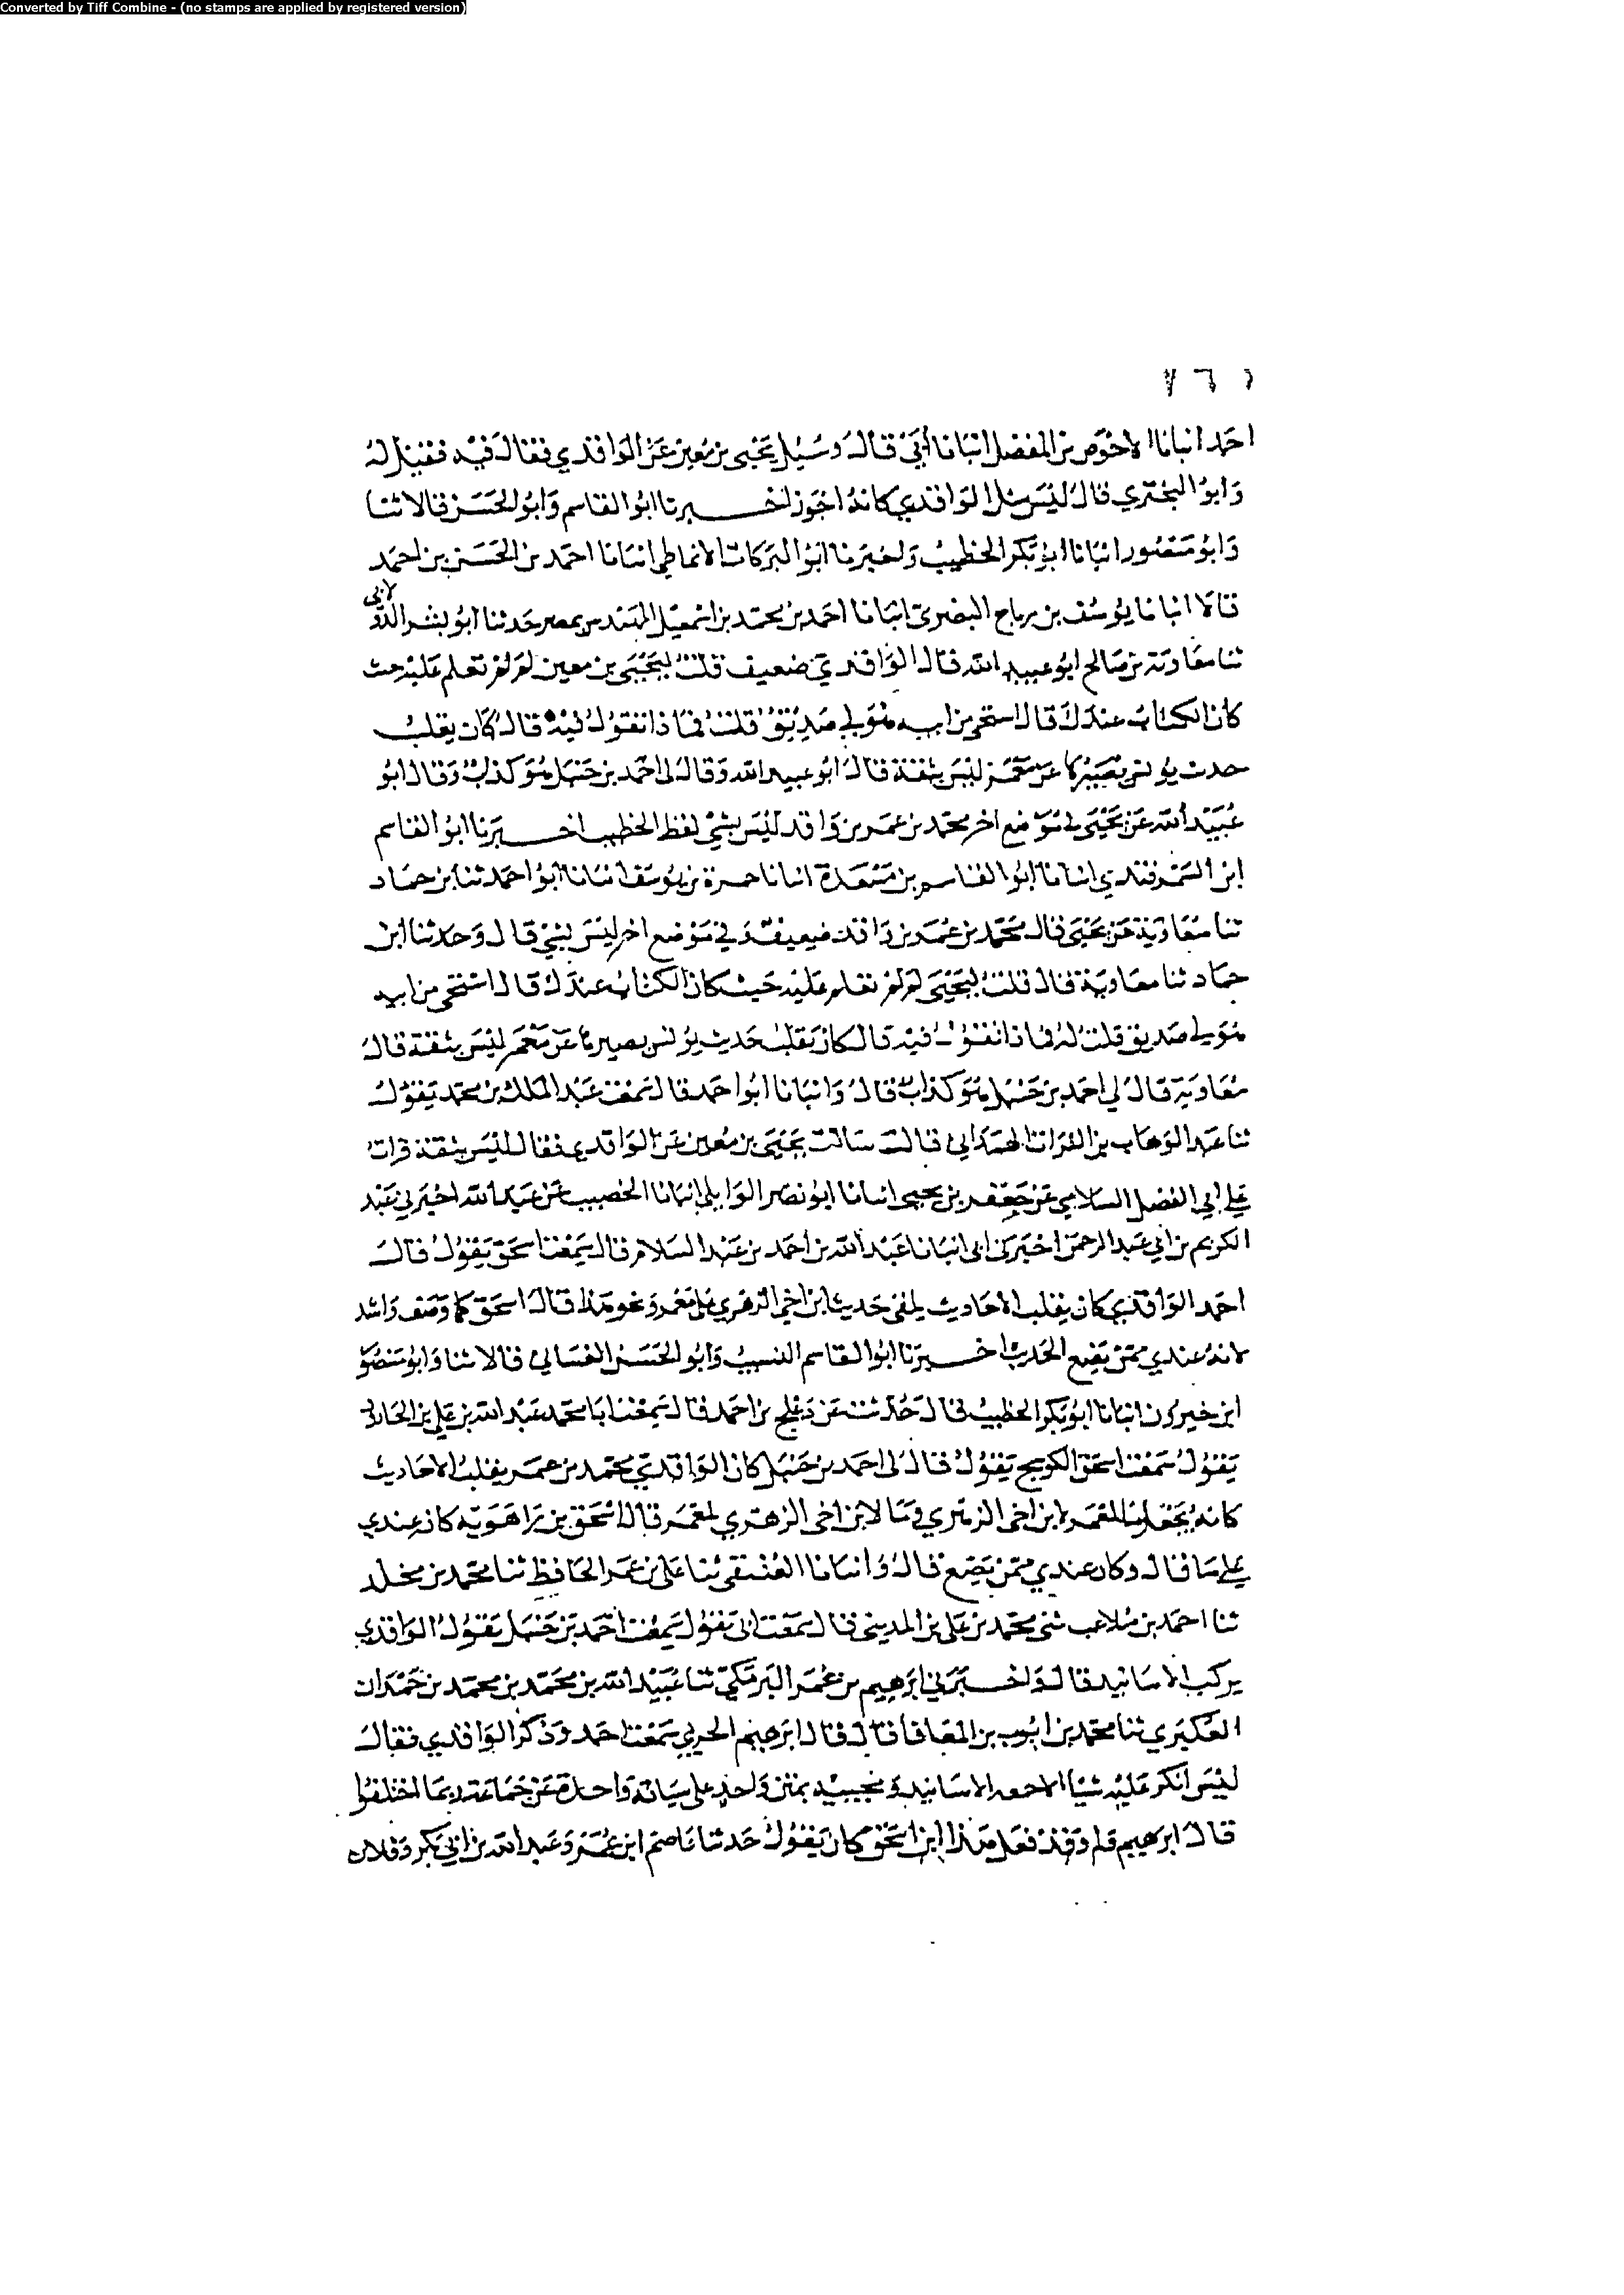 Converted by Tiff Combine - (no stamps are applied by registered version)
احمد انبانا الاحوص بن المفضل انبانا أبي قال وسئل يحيى بن معين عن الواقدي فقال فيه فقيل له
وابو البختري قال ليس مثل الواقدي كانه اجوز اخبرنا ابو القاسم وابو الحسن قالا ثنا
وابو منصور انبانا ابو بكر الخطيب واخبرنا ابو البركات الانماطي انبانا احمد بن الحسن بن احمد
قالا انبانا يوسف بن رباح البصري انبانا احمد بن محمد بن اسمعيل المهندس بمصر حدثنا ابو بشر الدولابي
ثنا معاوية بن صالح ابو عبيد الله قال الواقدي ضعيف قلت ليحيى بن معين لم لم تعلم عليه حيث
كان الكتاب عندك قال استحي من ابنه هو لي صديق قلت فماذا تقول فيه قال كان يقلب
حديث يونس يصيرها عن معمر ليس بثقة قال ابو عبيد الله وقال لي احمد بن حنبل هو كذاب وقال ابو
عبيد الله عن يحيى في موضع اخر محمد بن عمر بن واقد ليس بشي لفظ الخطيب اخبرنا ابو القاسم
ابن السمرقندي انبانا ابو القاسم بن مسعدة انبانا حمزة بن يوسف انبانا ابو احمد ثنا بن حماد
ثنا معاوية عن يحيى قال محمد بن عمر بن واقد ضعيف وفي موضع اخر ليس بشي قال وحدثنا ابن
حماد ثنا معاوية قال قلت ليحيى لم لم تعلم عليه حيث كان الكتاب عندك قال استحي من ابنه
هو لي صديق قلت له فماذا تقول فيه قال كان يقلب حديث يونس يصيرها عن معمر ليس بثقة قال
معاوية قال لي احمد بن حنبل هو كذاب قال وانبانا ابو احمد قال سمعت عبد الملك بن محمد يقول
ثنا عبد الوهاب بن الفرات الهمداني قال سالت يحيى بن معين عن الواقدي فقال ليس بثقة قرات
على ابي الفضل السلامي عن جعفر بن يحيى انبانا ابو نصر الوايلي انبانا الخصيب بن عبد الله اخبرني عبد
الكريم بن ابي عبد الرحمن اخبرني ابي انبانا عبد الله بن احمد بن عبد السلام قال سمعت اسحق يقول قال
احمد الواقدي كان يقلب الاحاديث يلقي حديث ابن اخي الزهري على معمر ونحو هذا قال اسحق كما وصف واشد
لانه عندي ممن يضع الحديث اخبرنا ابو القاسم النسيب وابو الحسن الغساني قالا ثنا وابو منصور
ابن خيرون انبانا ابو بكر الخطيب قال حدثت عن دعلج بن احمد قال سمعت ابا محمد عبد الله بن علي بن الجارود
يقول سمعت اسحق الكوسج يقول قال لي احمد بن حنبل كان الواقدي محمد بن عمر يقلب الاحاديث
كانه يجعل ما لمعمر لابن اخي الزهري وما لابن اخي الزهري لمعمر قال اسحق بن راهويه كان عندي
على ما قال وكان عندي ممن يضع قال وانبانا العتيقي ثنا علي بن عمر الحافظ ثنا محمد بن مخلد
ثنا احمد بن ملاعب ثني محمد بن علي بن المديني قال سمعت ابي يقول سمعت احمد بن حنبل يقول الواقدي
يركب الاسانيد قال واخبرني ابرهيم بن عمر البرمكي ثنا عبيد الله بن محمد بن محمد بن حمدان
العكبري ثنا محمد بن ايوب بن المعافا قال قال ابرهيم الحربي سمعت احمد وذكر الواقدي فقال
ليس انكر عليه شيا الا جمعه الاسانيد ومجييه بمتن واحد على سياقة واحدة عن جماعة ربما اختلفوا
قال ابرهيم فلم وقد فعل هذا ابن اسحق كان يقول حدثنا عاصم ابن عمر وعبد الله بن ابي بكر وفلان